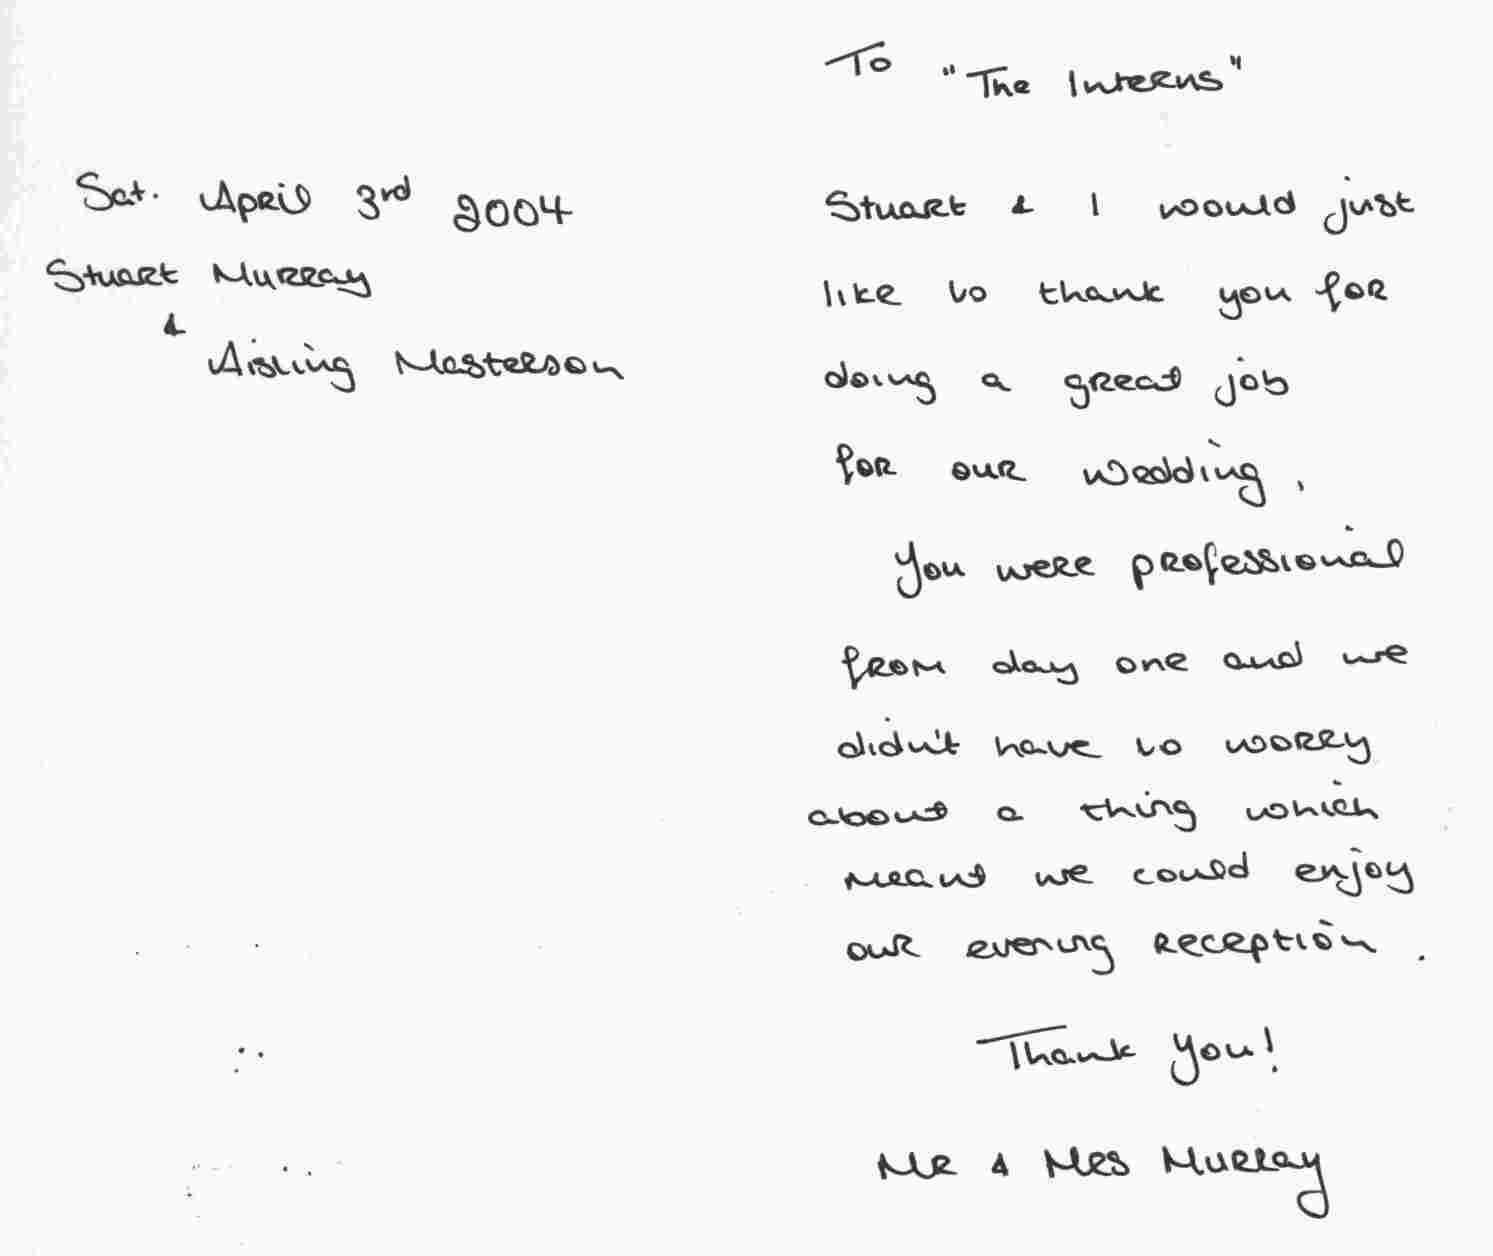 Sat. April 3rd 2004
Stuart Murray
&
Aisling Masterson
To "The Interns"
Stuart & I would just
like to thank you for
doing a great job
for our wedding.
You were professional
from day one and we
didn't have to worry
about a thing which
meant we could enjoy
our evening reception.
Thank You!
Mr & Mrs Murray